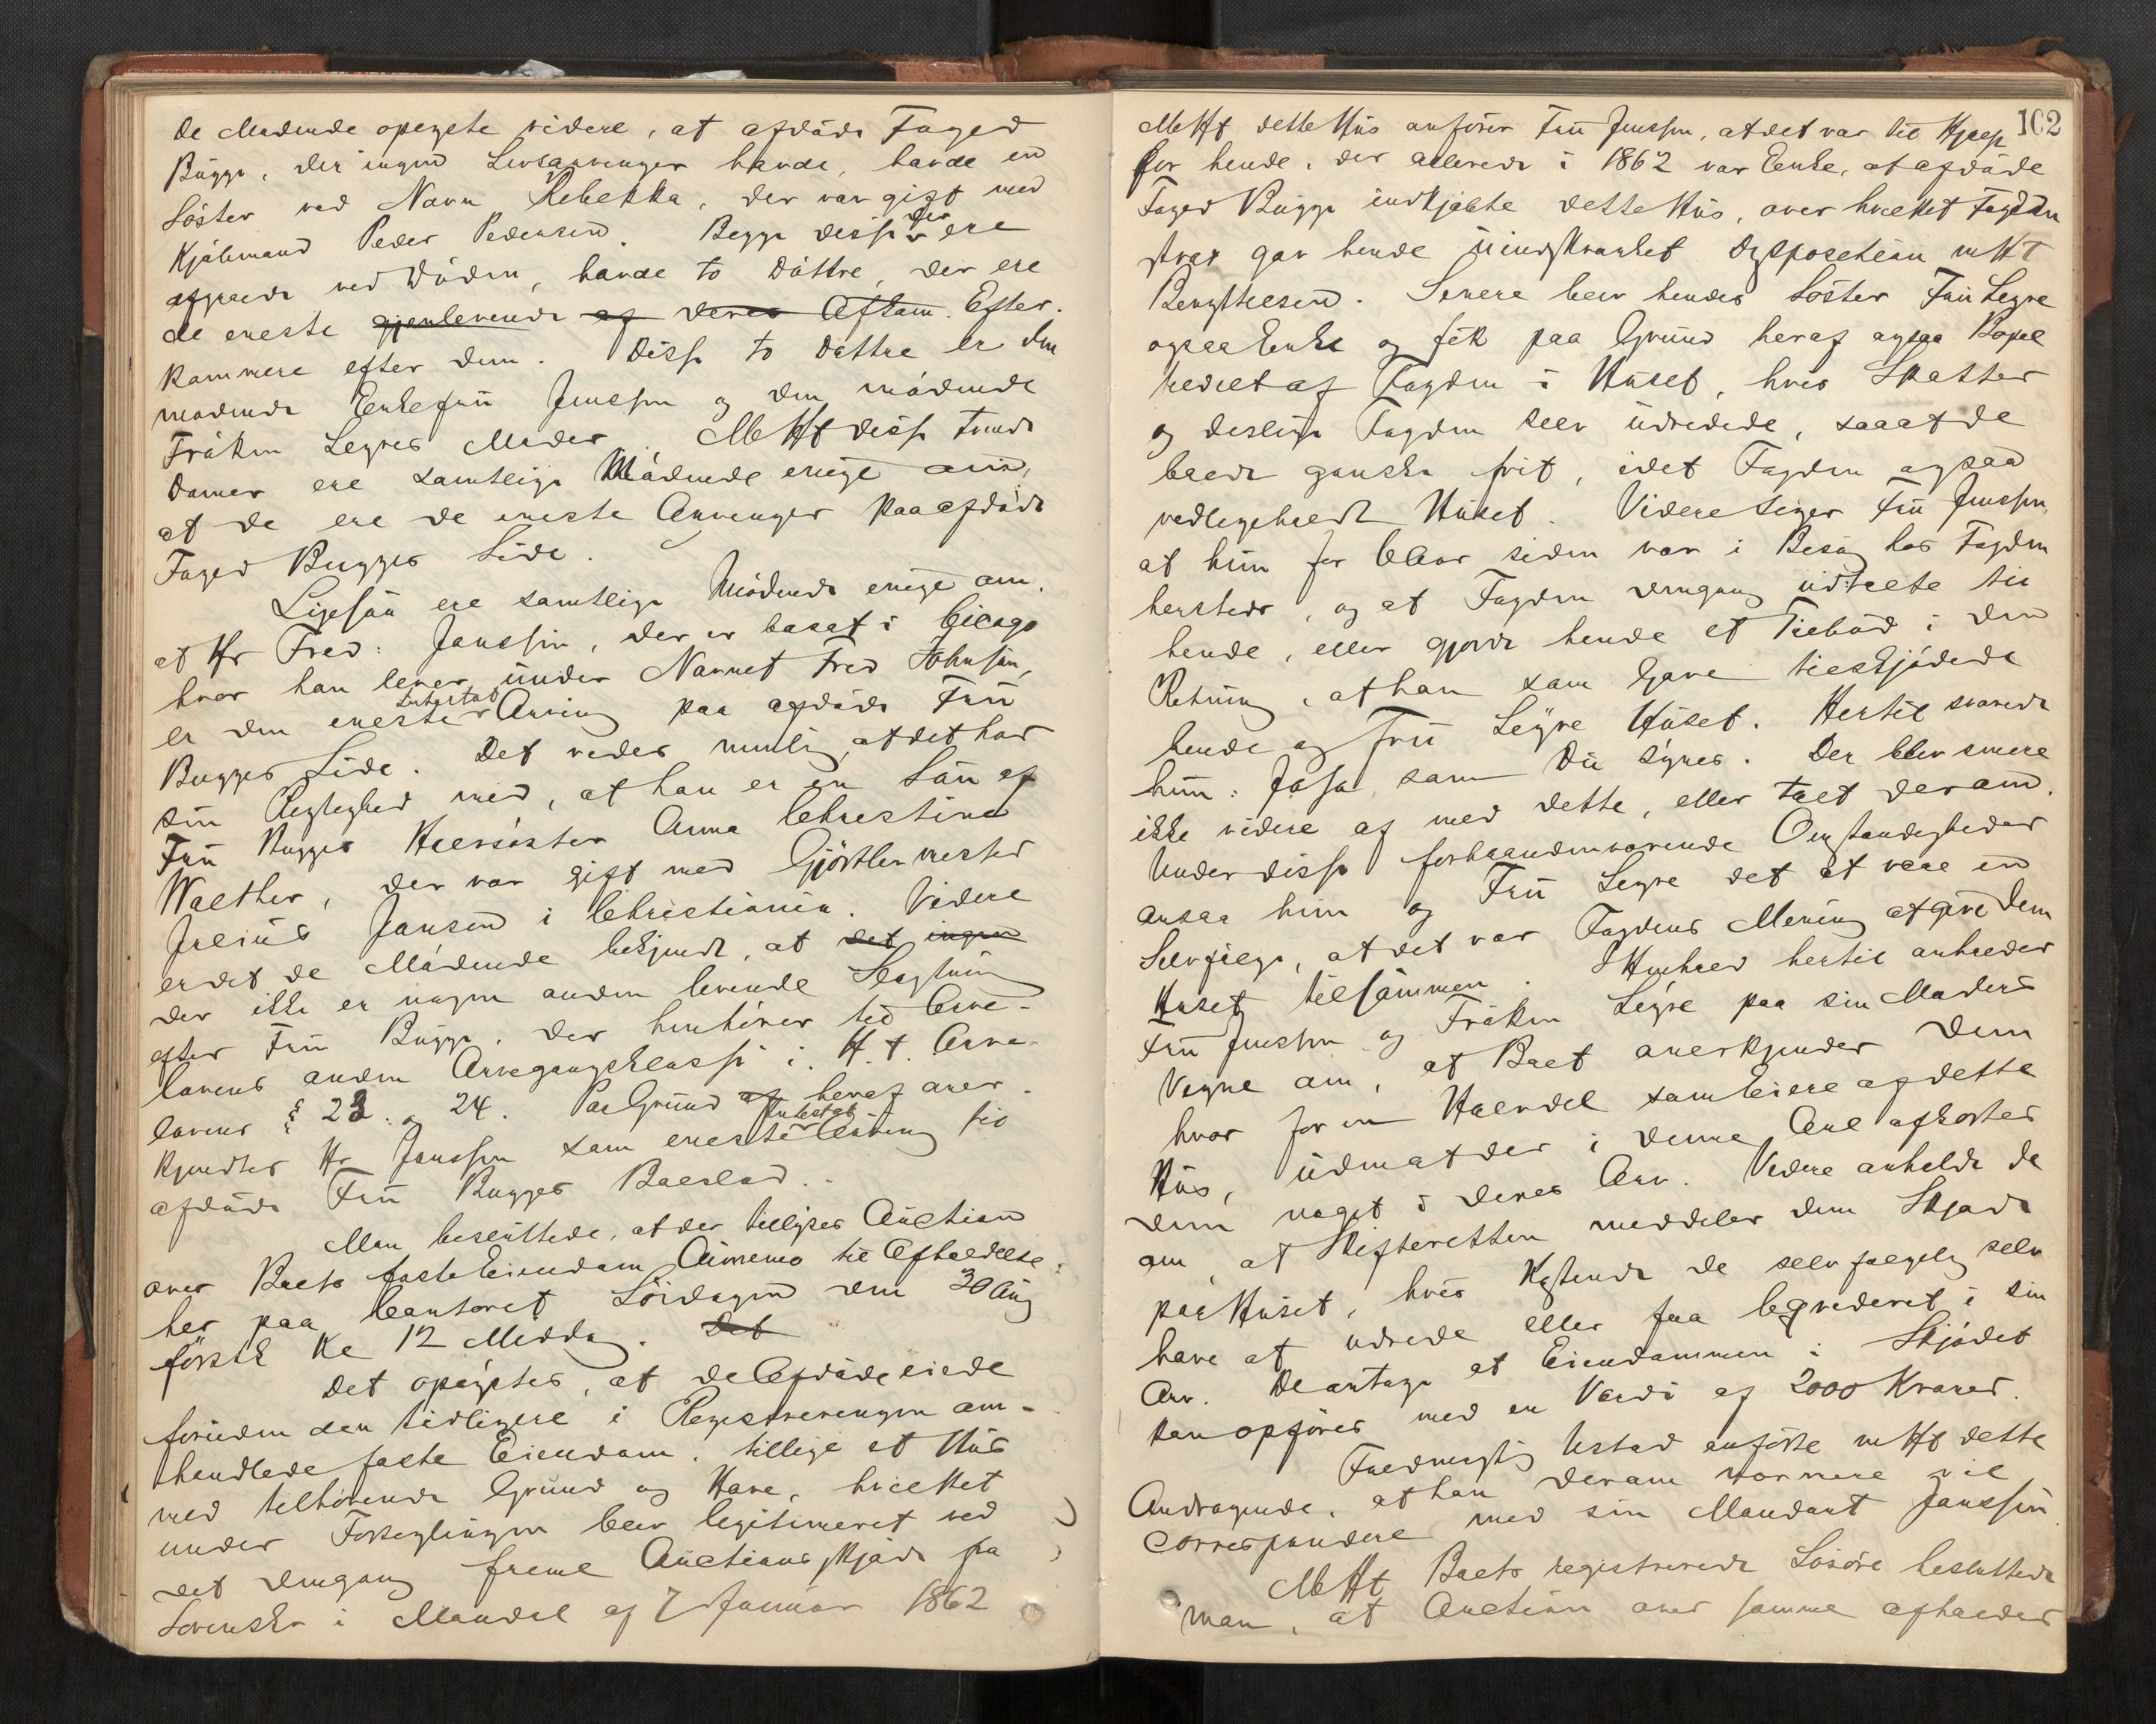 de Mødende opgyste videre, at afdøde Foged
Bugge, der ingen Livsarvinger havde, havde en
Søster ved Navn Rebekka, der var gift med
Kjøbmand Peder Pedersen. Begge disse der ere
afgaaede ved Døden, havde to Døttre, der ere
de eneste gjenlevende af deres Afkom. Efter-
kommere efter dem. Disse to Døttre er den
mødende Enkefru Jenssen og den mødende
Frøken Legres Moder. M. H. t. disse tvende
Damer ere samtlige Mødende enige om,
at de ere de eneste Arvinger paa afdøde
Foged Bugges Side.
Ligesaa ere samtlige Mødende enige om,
at Hr Fred: Janssen, der er bosat i Cicago
hvor han lever under Navnet Fred Johnson,
er den eneste Intestat Arving paa afdøde Fru
Bugges Side. Det vides nemlig, at det har
sin Rigtighed med, at han er en Søn af
Fru Bugges Halvsøster Anna Christine
Walther, der var gift med Gjørtlermester
Julius Jansen i Christiania. Videre
er det de Mødende bekjendt, at det ingen
der ikke er nogen anden levende Slægtning
efter Fru Bugge, der henhører til Arve-
lovens anden Arvegangsklasse i. H. t. Arve-
lovens § 23. og 24. Paa Grund af heraf aner-
kjendtes Hr Janssen som eneste Intestat Arving til
afdøde Fru Bugges Boeslod.
Man besluttede, at der tillyses Auction
over Boets faste Eiendom Aimemo til Afholdelse
her paa Contoret Lørdagen den 30 Aug
førstk Kl 12 Middag. Det
Det oplystes, at de Afdøde eiede
foruden den tidligere i Registreringen om-
handlede faste Eiendom, tillige et Hus
med tilhørende Grund og Have, hvilket
under Forseglingen blev legitimeret ved
det dengang fremlagte Auctionsskjøde fra
Sorenskr i Mandal af 7 Januar 1862
102
M. H. t. dette Hus anfører Fru Jenssen, at det var til Hjælp
for hende, der allerede i 1862 var Enke, at afdøde
Foged Bugge indkjøbte dette Hus, over hvilket Fogden
strax gav hende uindskrænket Dispositión m H t
Benyttelsen. Senere blev hendes Søster Fru Legre
ogsaa Enke og fik paa Grund heraf ogsaa Bopæl
hedret af Fogden i Huset, hvis Skatter
og deslige Fogden selv udredede, saa at de
boede ganske frit, idet Fogden ogsaa
vedligeholdt Huset. Videre siger Fru Jenssen,
at hun for 6 Aar siden var i Besøg hos Fogden
hersteds, og at Fogden dengang udtalte til
hende, eller gjorde hende et Tilbud i den
Retning, at han som Gave tilskjødede
hende og Fru Legre Huset. Hertil svarede
hun: Ja saa som Du synes. Der blev senere
ikke videre af med dette, eller talt derom.
Under disse forhaandenværende Omstændigheder
ansaa hun og Fru Legre det at være en
Selvfølge, at det var Fogdens Mening at give dem
Huset tilsammen. I Henhold hertil anholder
Fru Jenssen og Frøken Legre paa sin Moders
Vegne om, at Boet anerkjender dem
hver for en Halvdel som Eiere af dette
Hus, uden at der i denne Anl afkortes
dem noget i deres Arv. Videre anholdt de
om, at Skifteretten meddeler dem Skjøde
paa Huset, hvis Kostende de selvfølgelig selv
have at udrede eller faa liqvideret i sin
Arv. De antage at Eiendommen i Skjødet
kan opføres med en Værdi af 2000 Kroner.
Fuldmægtig Ustad anførte m H t dette
Andragende, at han derom nærmere vil
correspondere med sin Mandant Janssen.
M. H. t. Boets registrerede Løsøre besluttede
man, at Auction over samme afholdes